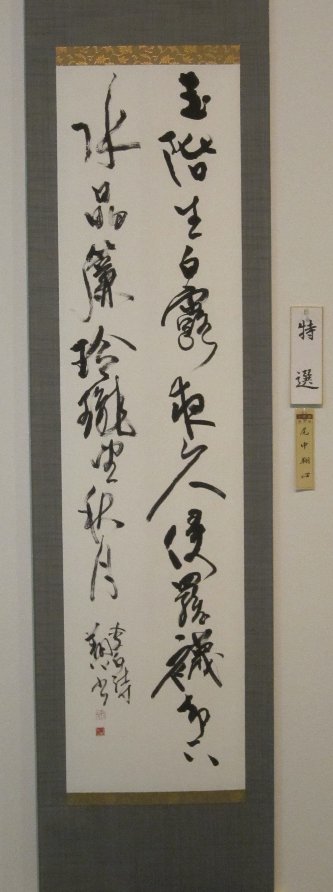 玉階生白露夜久侵羅襪却下
水晶簾玲瓏望秋月
李白詩
翔心書
特選
尾中翔心